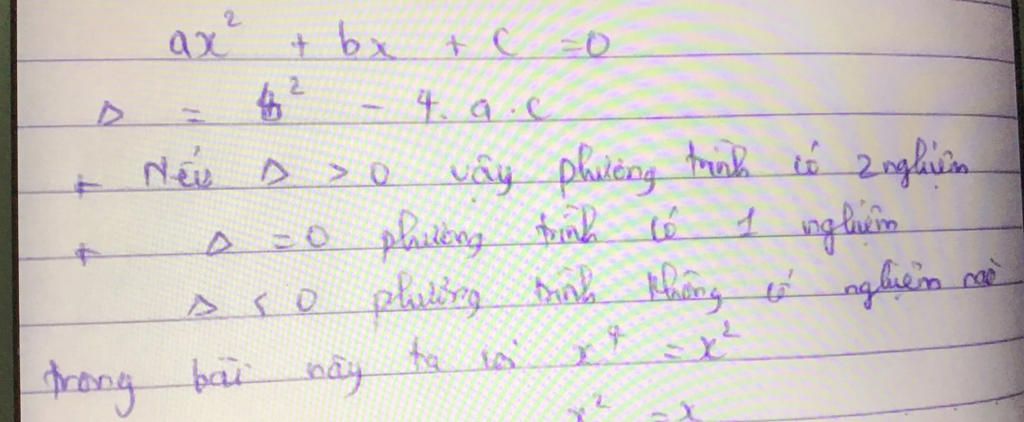 ax² + bx + c = 0
Δ = b² - 4. a . c
+ Nếu Δ > 0 vậy phương trình có 2 nghiệm
+ Δ = 0 phương trình có 1 nghiệm
Δ < 0 phương trình không có nghiệm nào
trong bài này ta có x⁴ = x²
x² = x